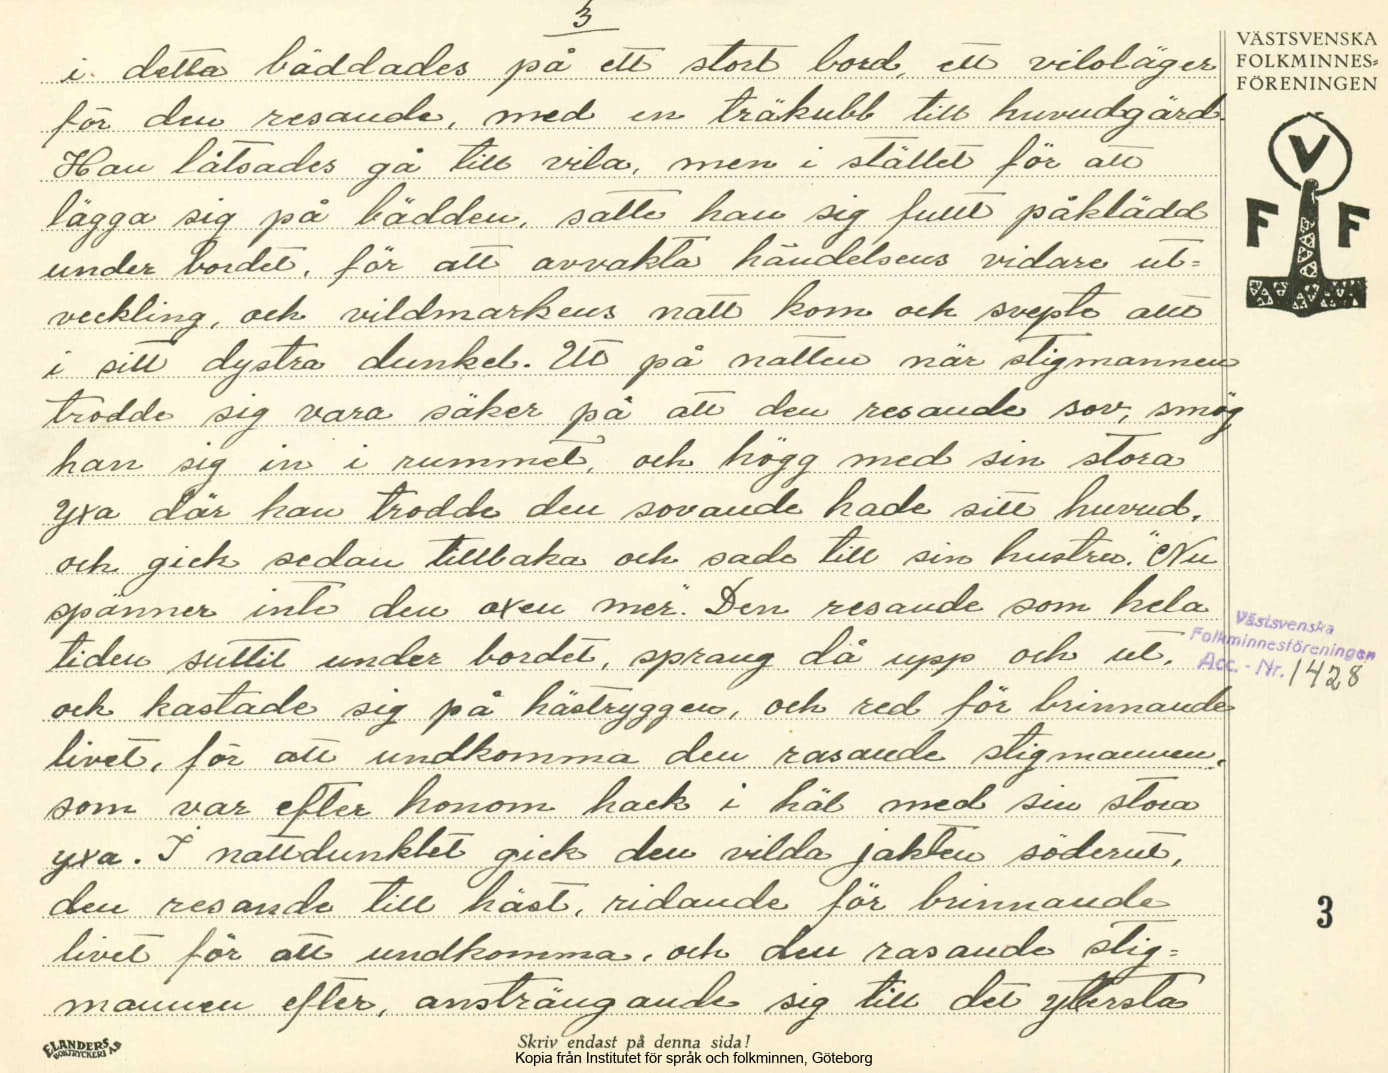 3
i detta bäddades på ett stort bord, ett viloläger
för den resande, med en träkubb till huvudgärd.
Han låtsades gå till vila, men i stället för att
lägga sig på bädden, satte han sig fullt påklädd
under bordet, för att avvakta händelsens vidare ut=
veckling, och vildmarkens natt kom och svepte allt
i sitt dystra dunkel. Ut på natten när stigmannen
trodde sig vara säker på att den resande sov, smög
han sig in i rummet, och högg med sin stora
yxa där han trodde den sovande hade sitt huvud,
och gick sedan tillbaka och sade till sin hustru. "Nu
spänner inte den oxen mer". Den resande som hela
tiden suttit under bordet, sprang då upp och ut,
och kastade sig på hästryggen, och red för brinnande
livet, för att undkomma den rasande stigmannen,
som var efter honom hack i häl med sin stora
yxa. I nattdunklet gick den vilda jakten söderut,
den resande till häst, ridande för brinnande
livet för att undkomma, och den rasande stig=
mannen efter, ansträngande sig till det yttersta
VÄSTSVENSKA
FOLKMINNES=
FÖRENINGEN
V
F F
Västsvenska
Folkminnesföreningen
Acc. - Nr. 1428
3
ELANDERS
BOKTRYCKERI AB
Skriv endast på denna sida!
Kopia från Institutet för språk och folkminnen, Göteborg